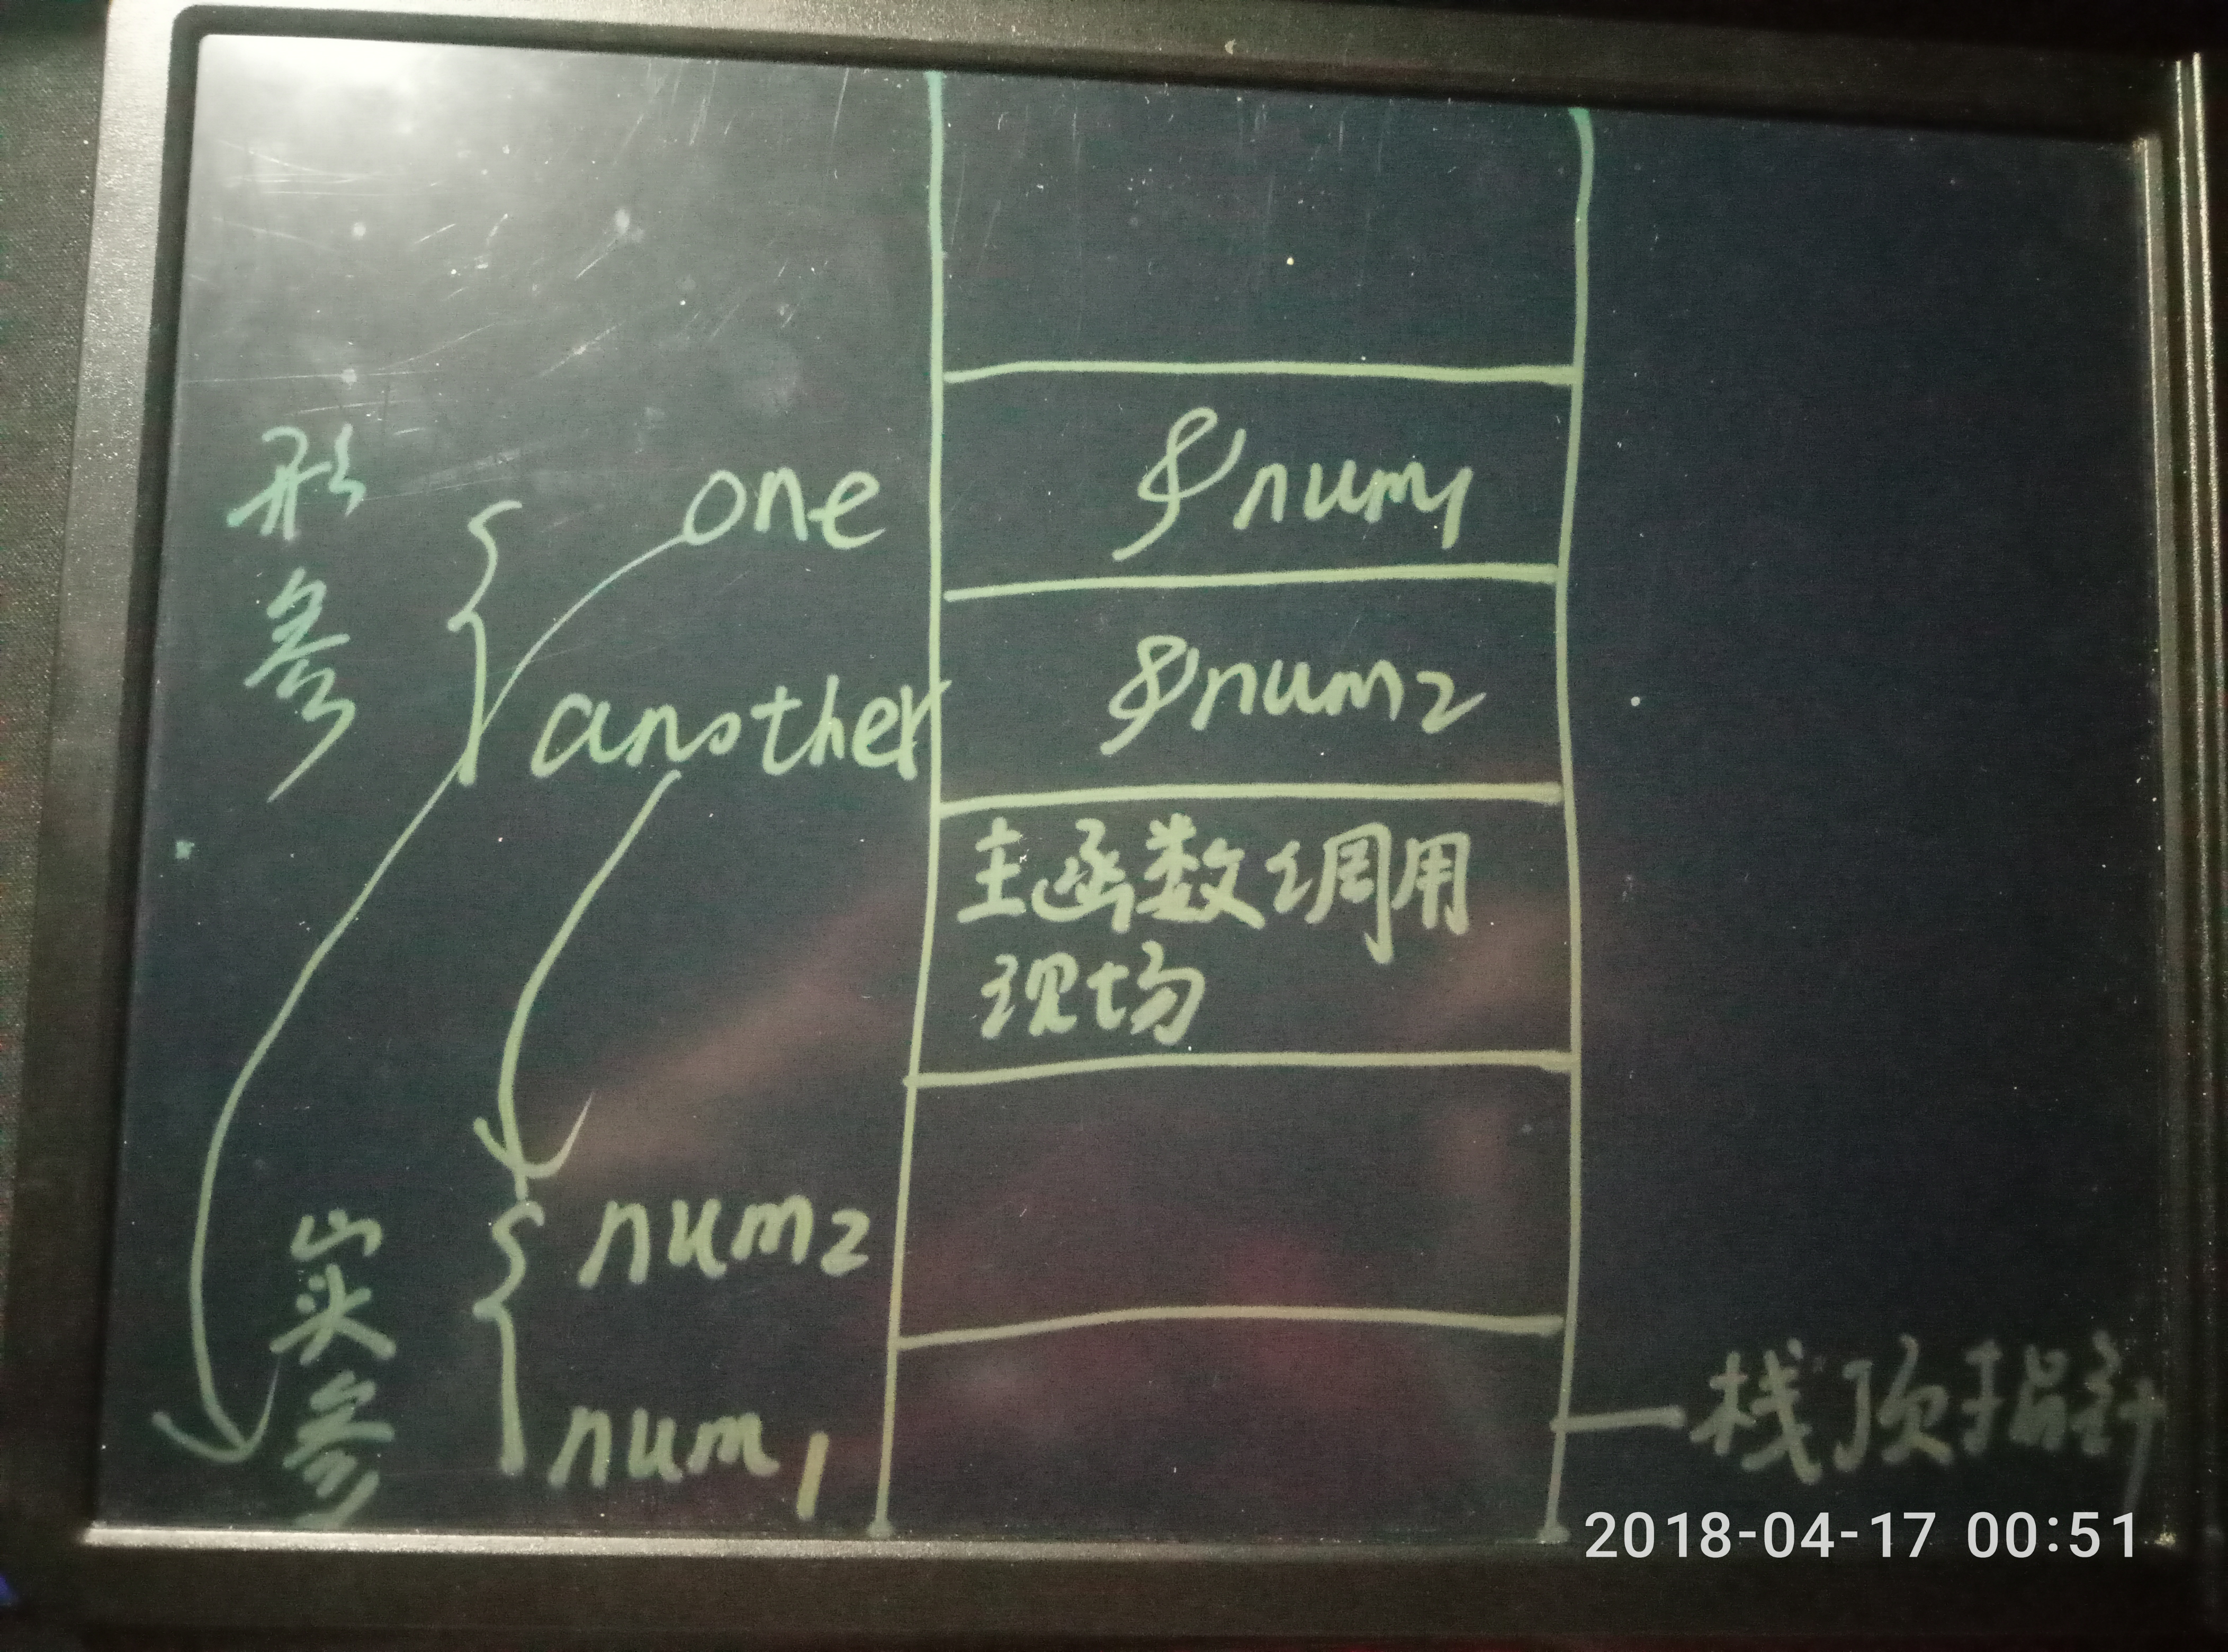 形参
one
&num1
another
&num2
主函数调用
现场
实参
num2
num1
栈顶指针
2018-04-17 00:51